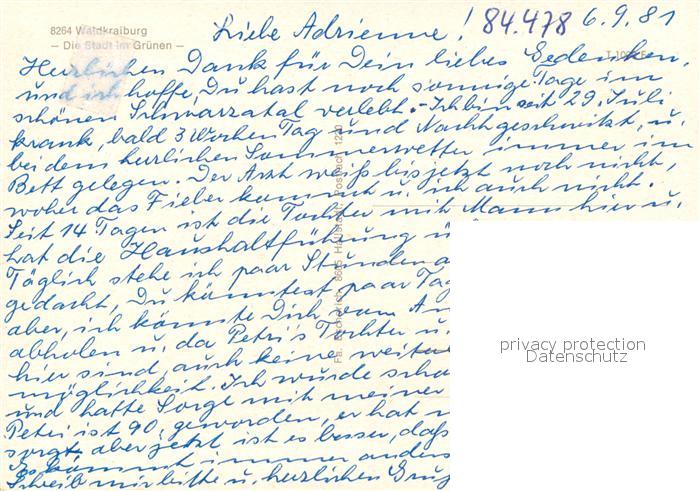 8264 Waldkraiburg
– Die Stadt im Grünen –
84.478 6.9.81
Liebe Adrienne!
Herzlichen Dank für Dein liebes Gedenken,
und ich hoffe, Du hast noch sonnige Tage im
schönen Schwarzatal verlebt. – Ich bin seit 29. Juli
krank, bald 3 Wochen Tag und Nacht geschwitzt, u.
bei dem herrlichen Sommerwetter immer im
Bett gelegen. Der Arzt weiß bis jetzt noch nicht,
woher das Fieber kommt u. ich auch nicht.
Seit 14 Tagen ist die Tochter mit Mann hier u.
hat die Haushaltführung ü
Täglich stehe ich paar Stunden a
gedacht, Du könntest paar Tag
aber, ich könnte Dich vom A
abholen u. da Petri's Tochter u.
hier sind, auch keine weiter
möglichkeit. Ich wurde scho
und hatte Sorge mit meiner
Petri ist 90 geworden, er hat
sorgt aber jetzt ist es besser, daß
Es kommt immer anders
Schreib mir bitte u. herzlichen Gruß
privacy protection
Datenschutz